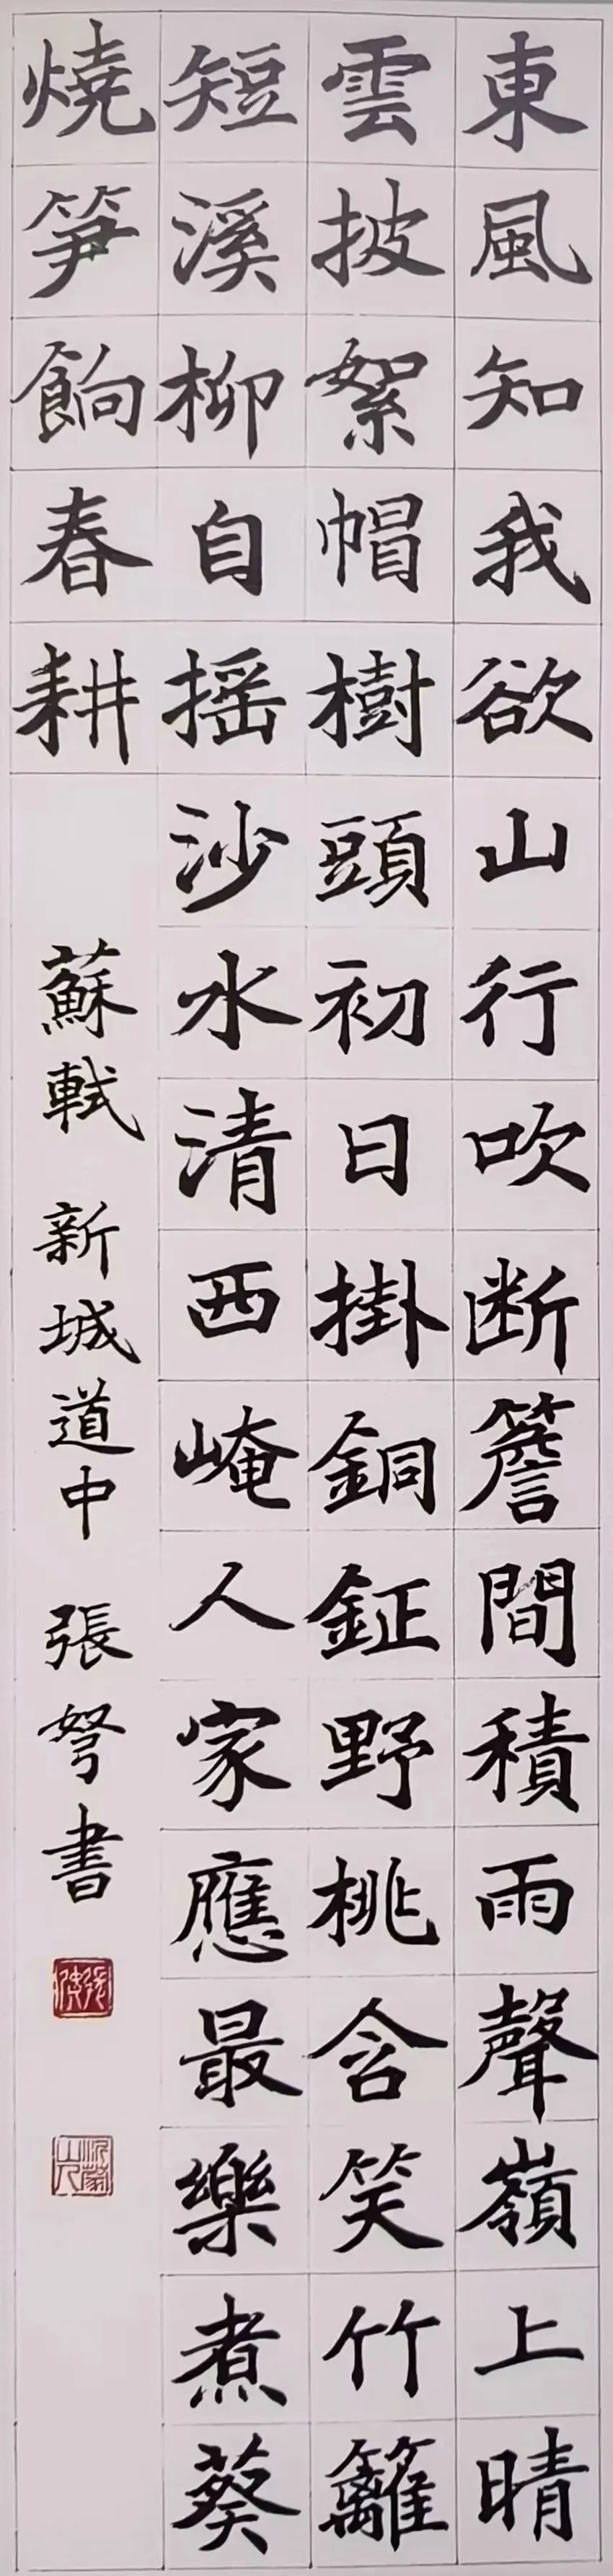 東風知我欲山行吹断簷間積雨聲嶺上晴
雲披絮帽樹頭初日掛銅鉦野桃含笑竹籬
短溪柳自摇沙水清西崦人家應最樂煮葵
燒笋餉春耕
蘇軾 新城道中 張弩書